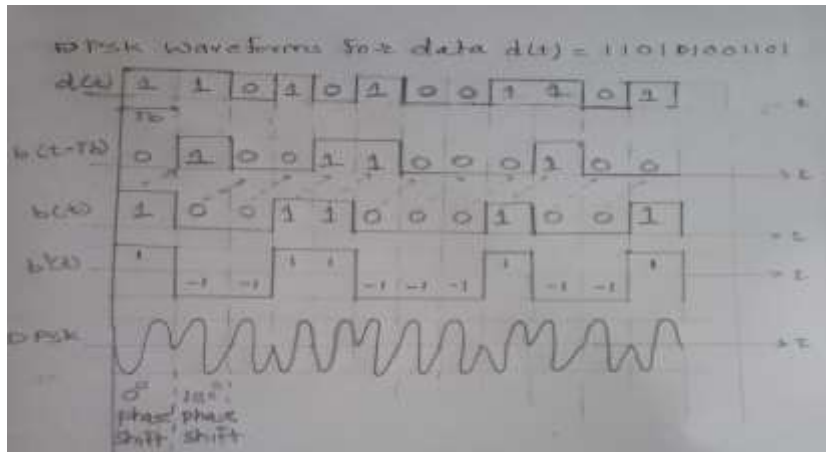 DPSK waveforms for data d(t) = 110101001101
d(t) 1 1 0 1 0 1 0 0 1 1 0 1 t
Tb
b(t-Tb) 0 1 0 0 1 1 0 0 0 1 0 0 t
b(t) 1 0 0 1 1 0 0 0 1 0 0 1 t
b'(t) 1 -1 -1 1 1 -1 -1 -1 1 -1 -1 1 t
DPSK t
0° 180°
phase phase
shift shift